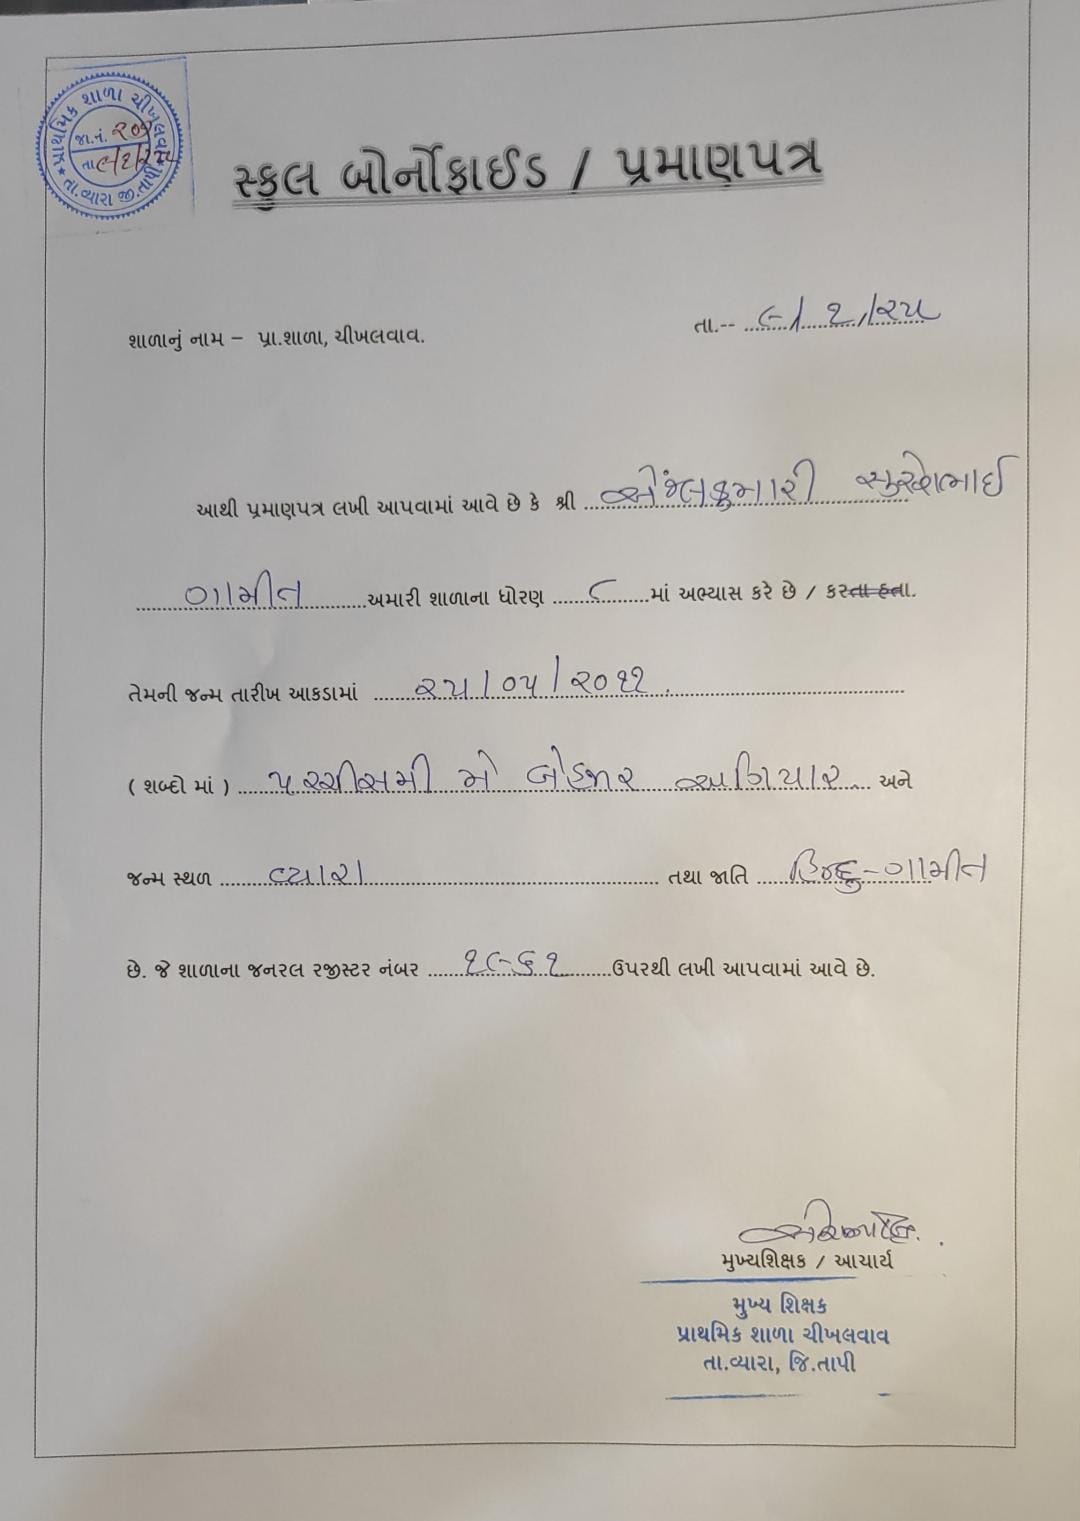 પ્રાથમિક શાળા ચીખલવાવ
જા.નં. ૨૦૧
તા.વ્યારા જી.તાપી
સ્કુલ બોર્નોફાઈડ / પ્રમાણપત્ર
શાળાનું નામ – પ્રા.શાળા, ચીખલવાવ. તા.-- ૯/ ૧ /૨૫
આથી પ્રમાણપત્ર લખી આપવામાં આવે છે કે શ્રી એંજલકુમારી સુરેશભાઈ
ગામીત અમારી શાળાના ધોરણ ૮ માં અભ્યાસ કરે છે / કરતા હતા.
તેમની જન્મ તારીખ આકડામાં ૨૫/૦૫/૨૦૧૧
( શબ્દો માં ) પચ્ચીસમી મે બેહજાર અગિયાર અને
જન્મ સ્થળ વ્યારા તથા જાતિ હિન્દુ-ગામીત
છે. જે શાળાના જનરલ રજીસ્ટર નંબર ૧૯૬૧ ઉપરથી લખી આપવામાં આવે છે.
મુખ્યશિક્ષક / આચાર્ય
મુખ્ય શિક્ષક
પ્રાથમિક શાળા ચીખલવાવ
તા.વ્યારા, જિ.તાપી